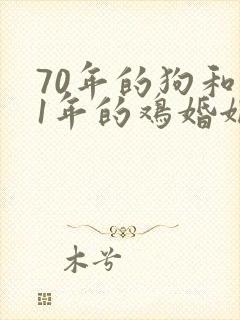 70年的狗和
1年的鸡婚
木兮